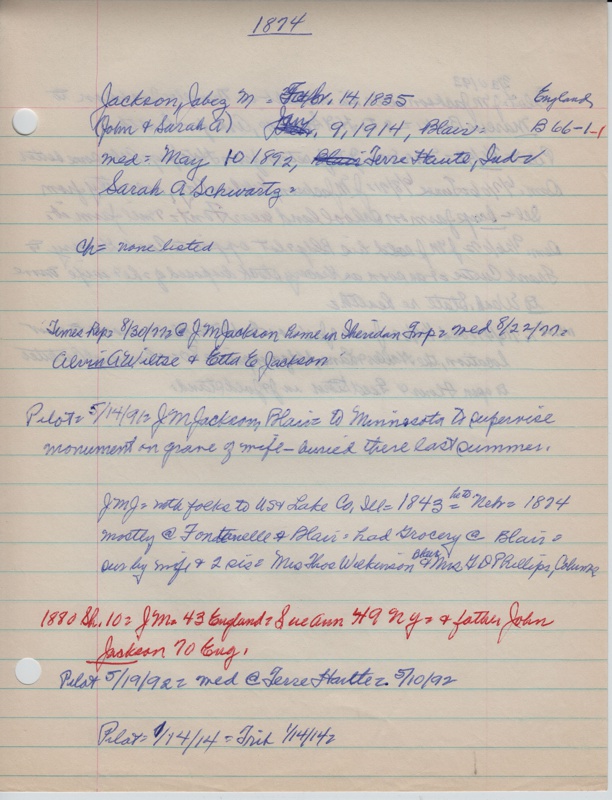 1874
Jackson, Jabez M = Feb. 14, 1835 England
(John & Sarah A) Jan. 9, 1914, Blair = B 66-1-1
med = May 10 1892, Blair Terre Haute, Ind
Sarah A Schwartz =
Ch = none listed
Times Rep = 8/30/77 = @ J M Jackson home in Sheridan Twp = med 8/22/77 =
Alvin A Wiltse & Etta E Jackson
Pilot = 5/14/91 = J M Jackson, Blair = to Minnesota to supervise
monument on grave of wife - buried there last summer.
JMJ = with folks to US & Lake Co, Ill = 1843 = to Neb = 1874
mostly @ Fontanelle & Blair = had Grocery @ Blair =
sur by wife & 2 sis = Mrs Thos Wilkinson Blair & Mrs G D Phillips, Columbus
1880 Sh. 10 = J M = 43 England = Sue Ann 49 N Y = & father John
Jackson 70 Eng.
Pilot 5/19/92 = med @ Terre Haute = 5/10/92
Pilot = 1/14/14 = Trib 1/14/14 =